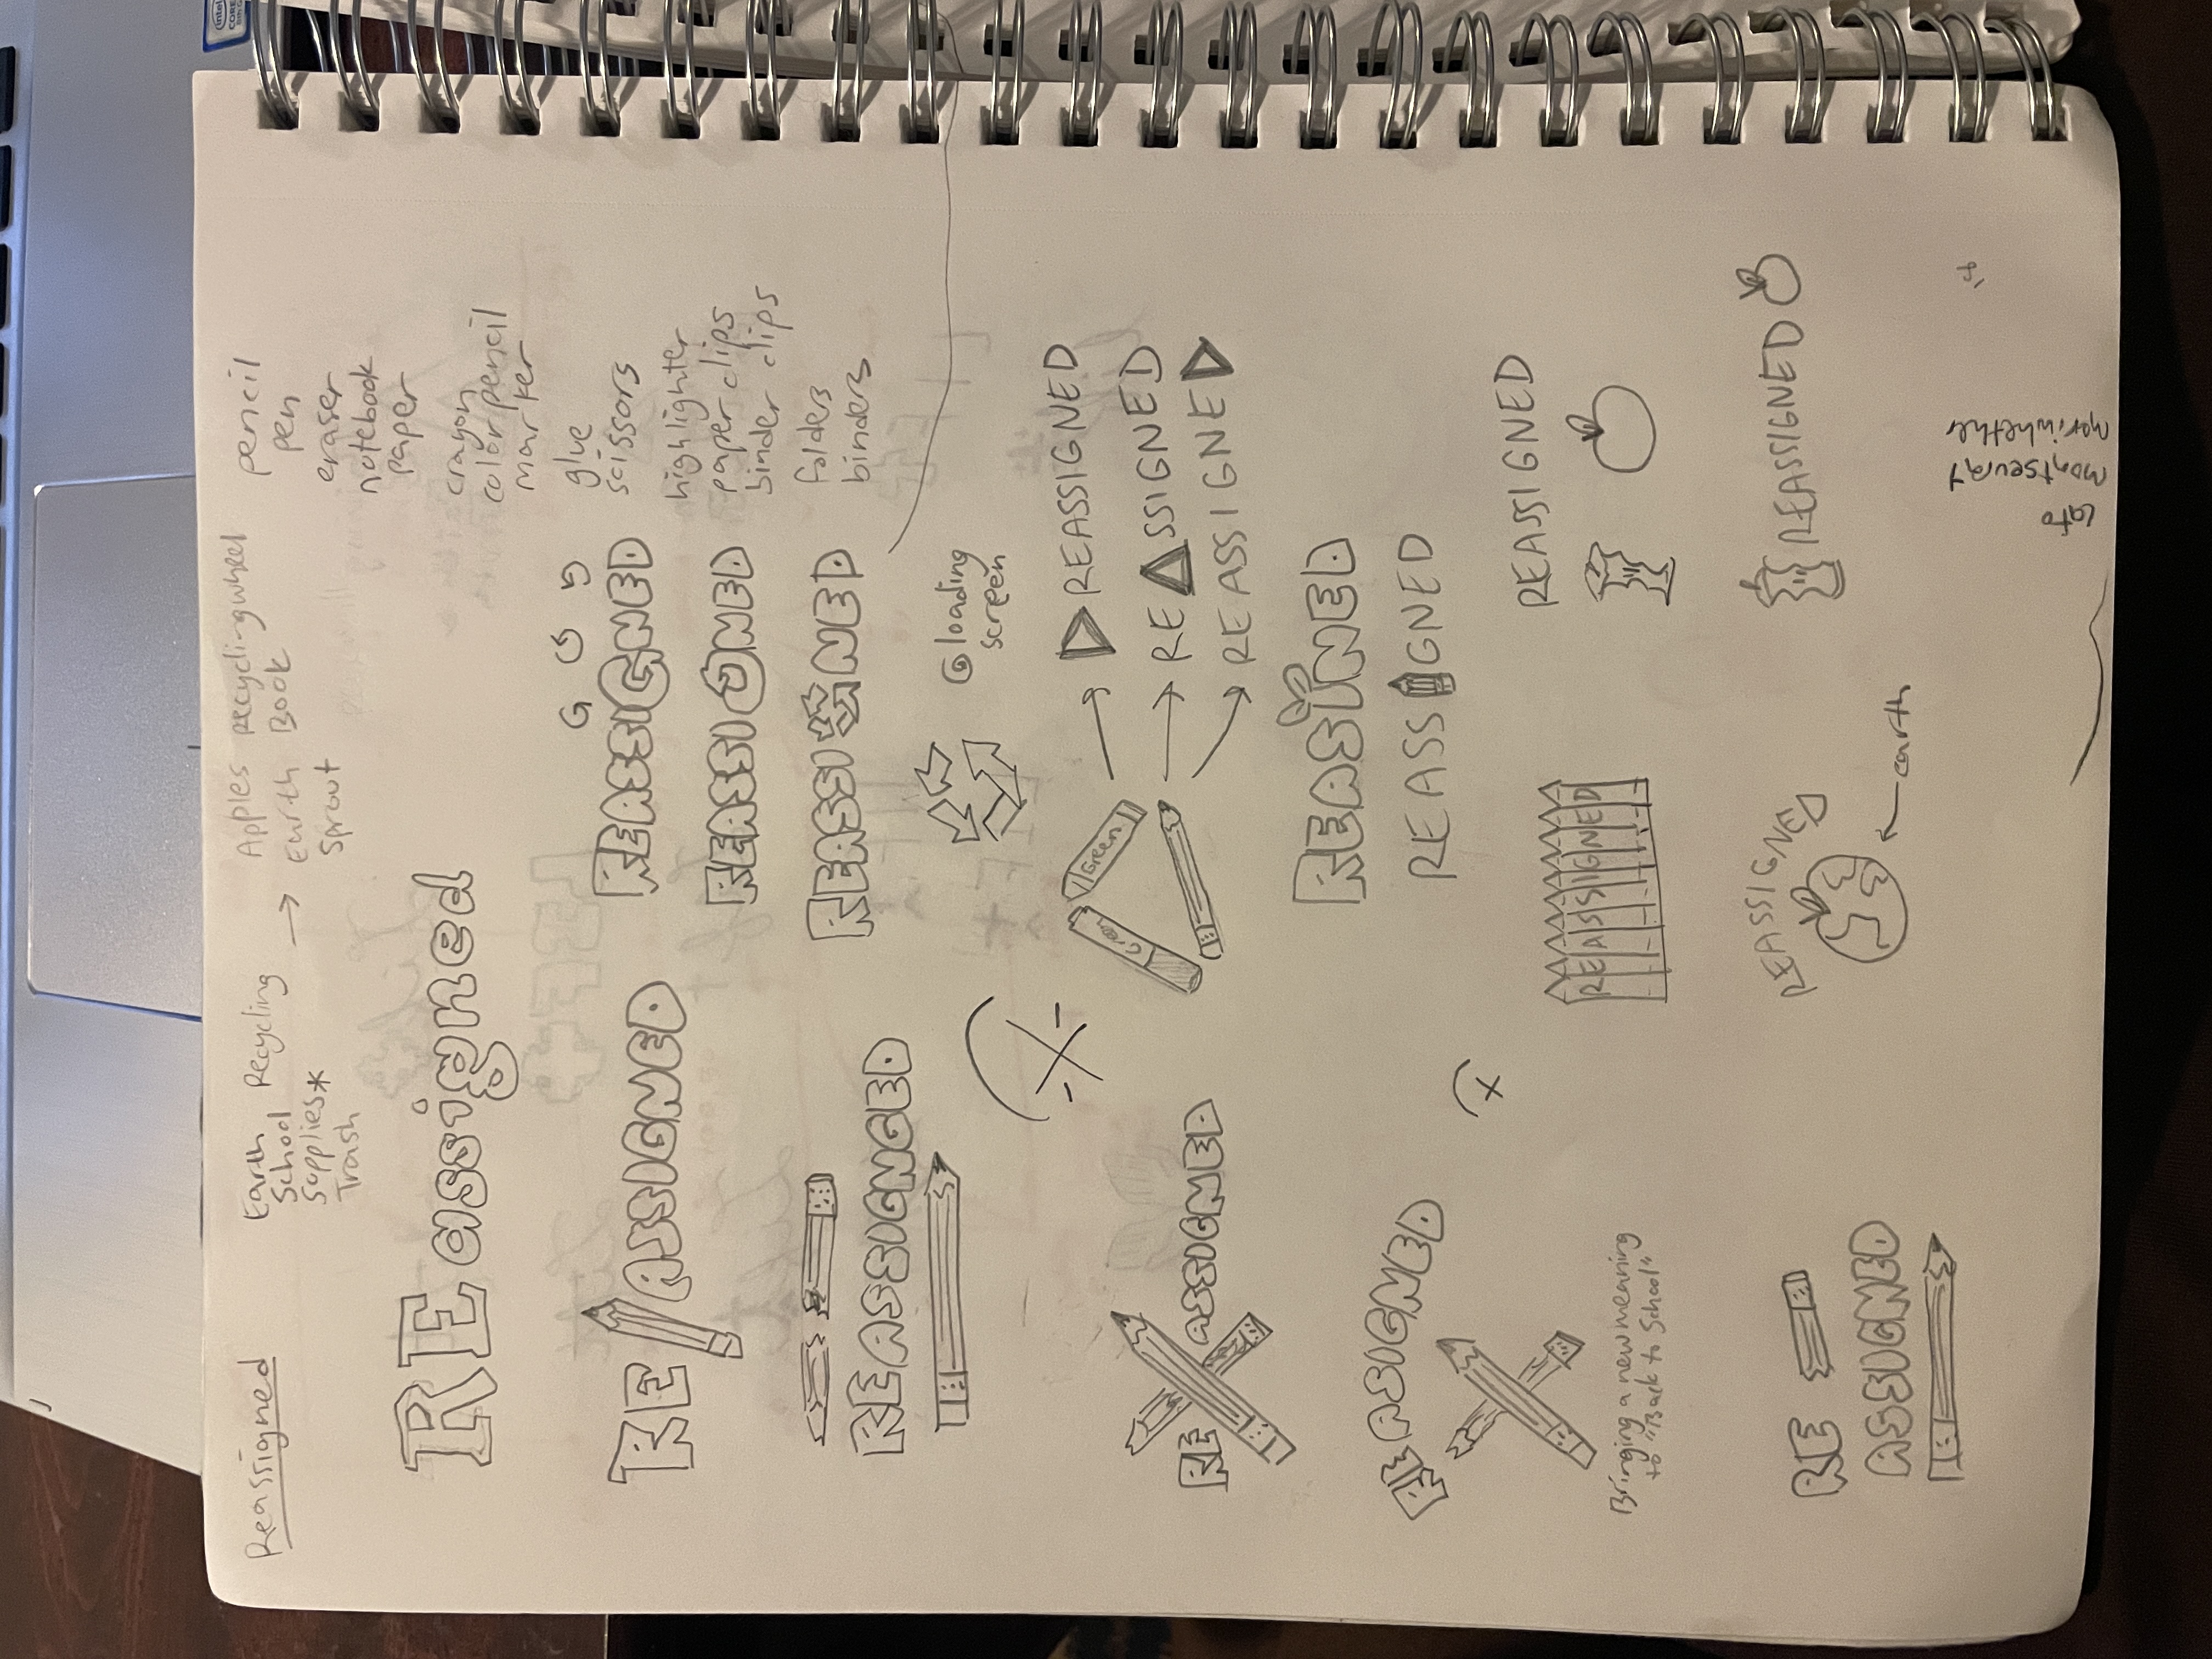 Reassigned
Earth Recycling
School
Supplies*
Trash
→
Apples recycling wheel
Earth Book
Sprout
pencil
pen
eraser
notebook
paper
crayon
color pencil
marker
glue
scissors
highlighter
paper clips
binder clips
folders
binders
REassigned
RE/ASSIGNED
G
REASSIGNED
REASSIGNED
REASSIGNED
REASSIGNGED
loading
screen
RE ASSIGNED
Green
Green
REASSIGNED
REASSIGNED
REASSIGNED
REASINED
REASSIGNED
REASIGNED
Bringing a new meaning
to "Back to School"
REASSIGNED
REASSIGNED
RE
ASSIGNED
REASSIGNED
earth
REASSIGNED
Lato
montseurat
meriwhether
intel
CORE